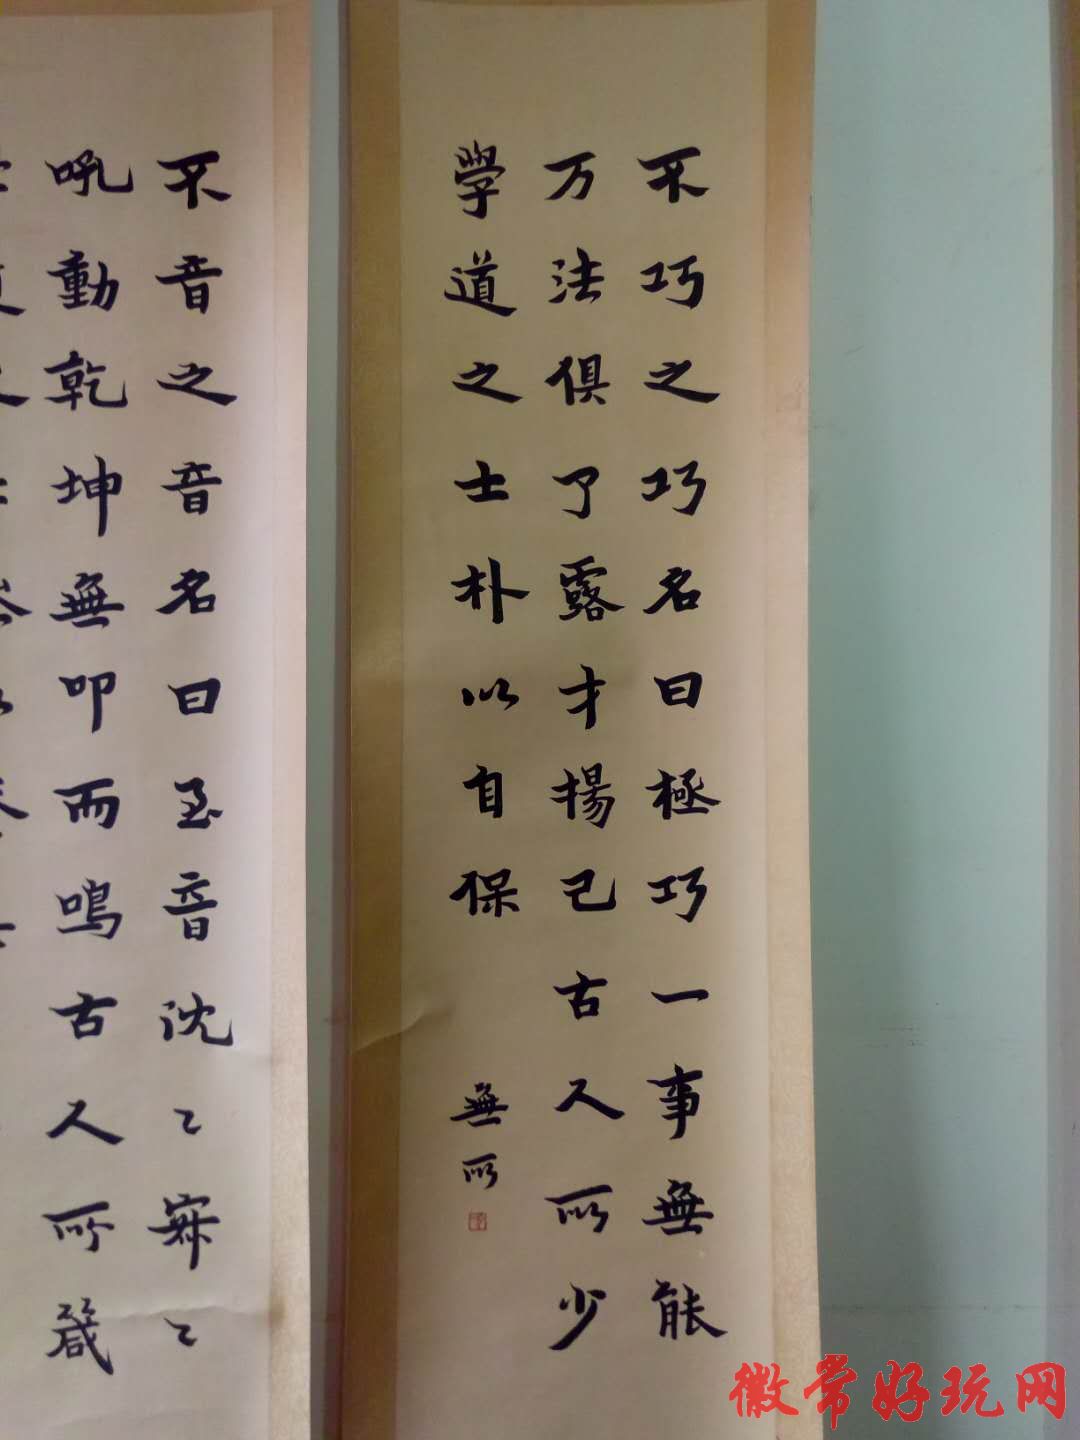 不巧之巧名曰極巧一事無能
万法俱了露才揚己古人所少
學道之士朴以自保
無所
不音之音名曰至音沈〻寂〻
吼動乾坤無叩而鳴古人所箴
徽常好玩网